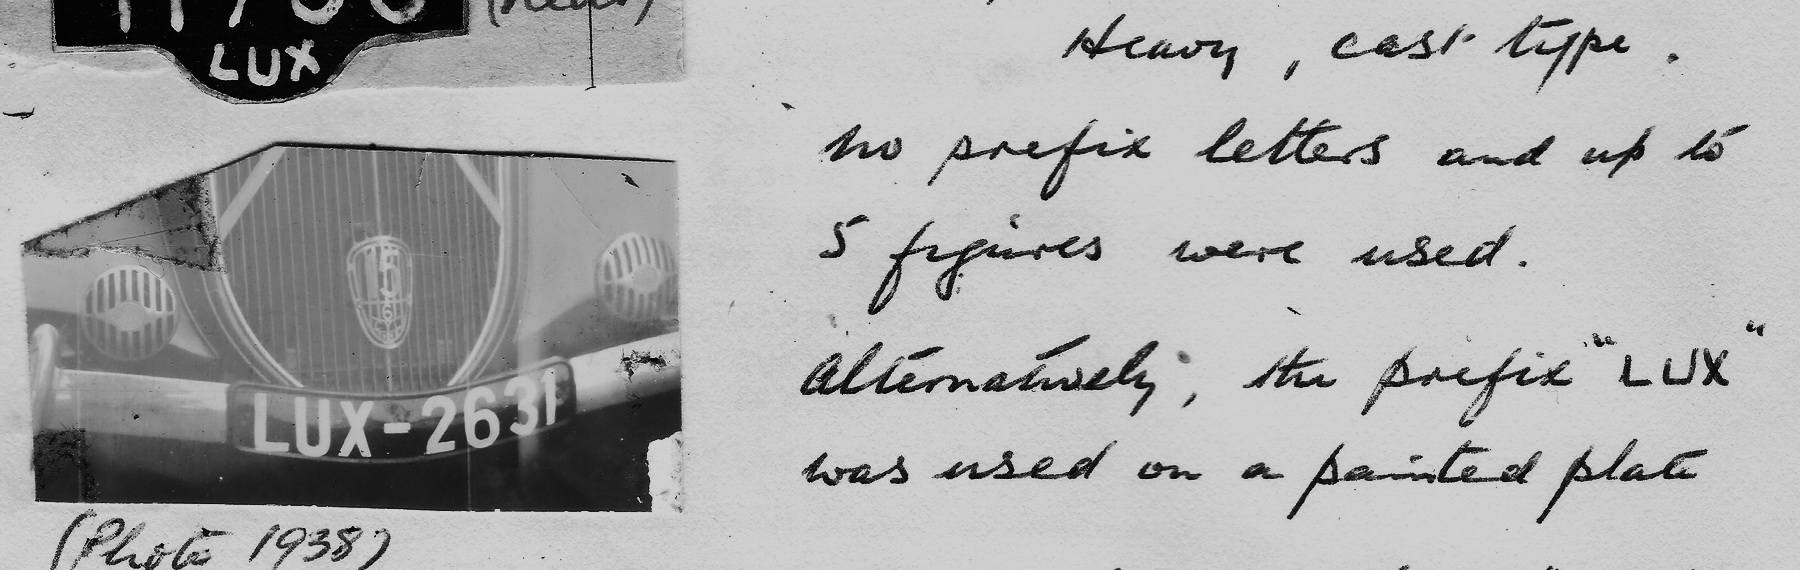 LUX
Heavy, cast type.
no prefix letters and up to
5 figures were used.
Alternatively, the prefix "LUX"
was used on a painted plate
15
6
LUX-2631
(Photo 1938)